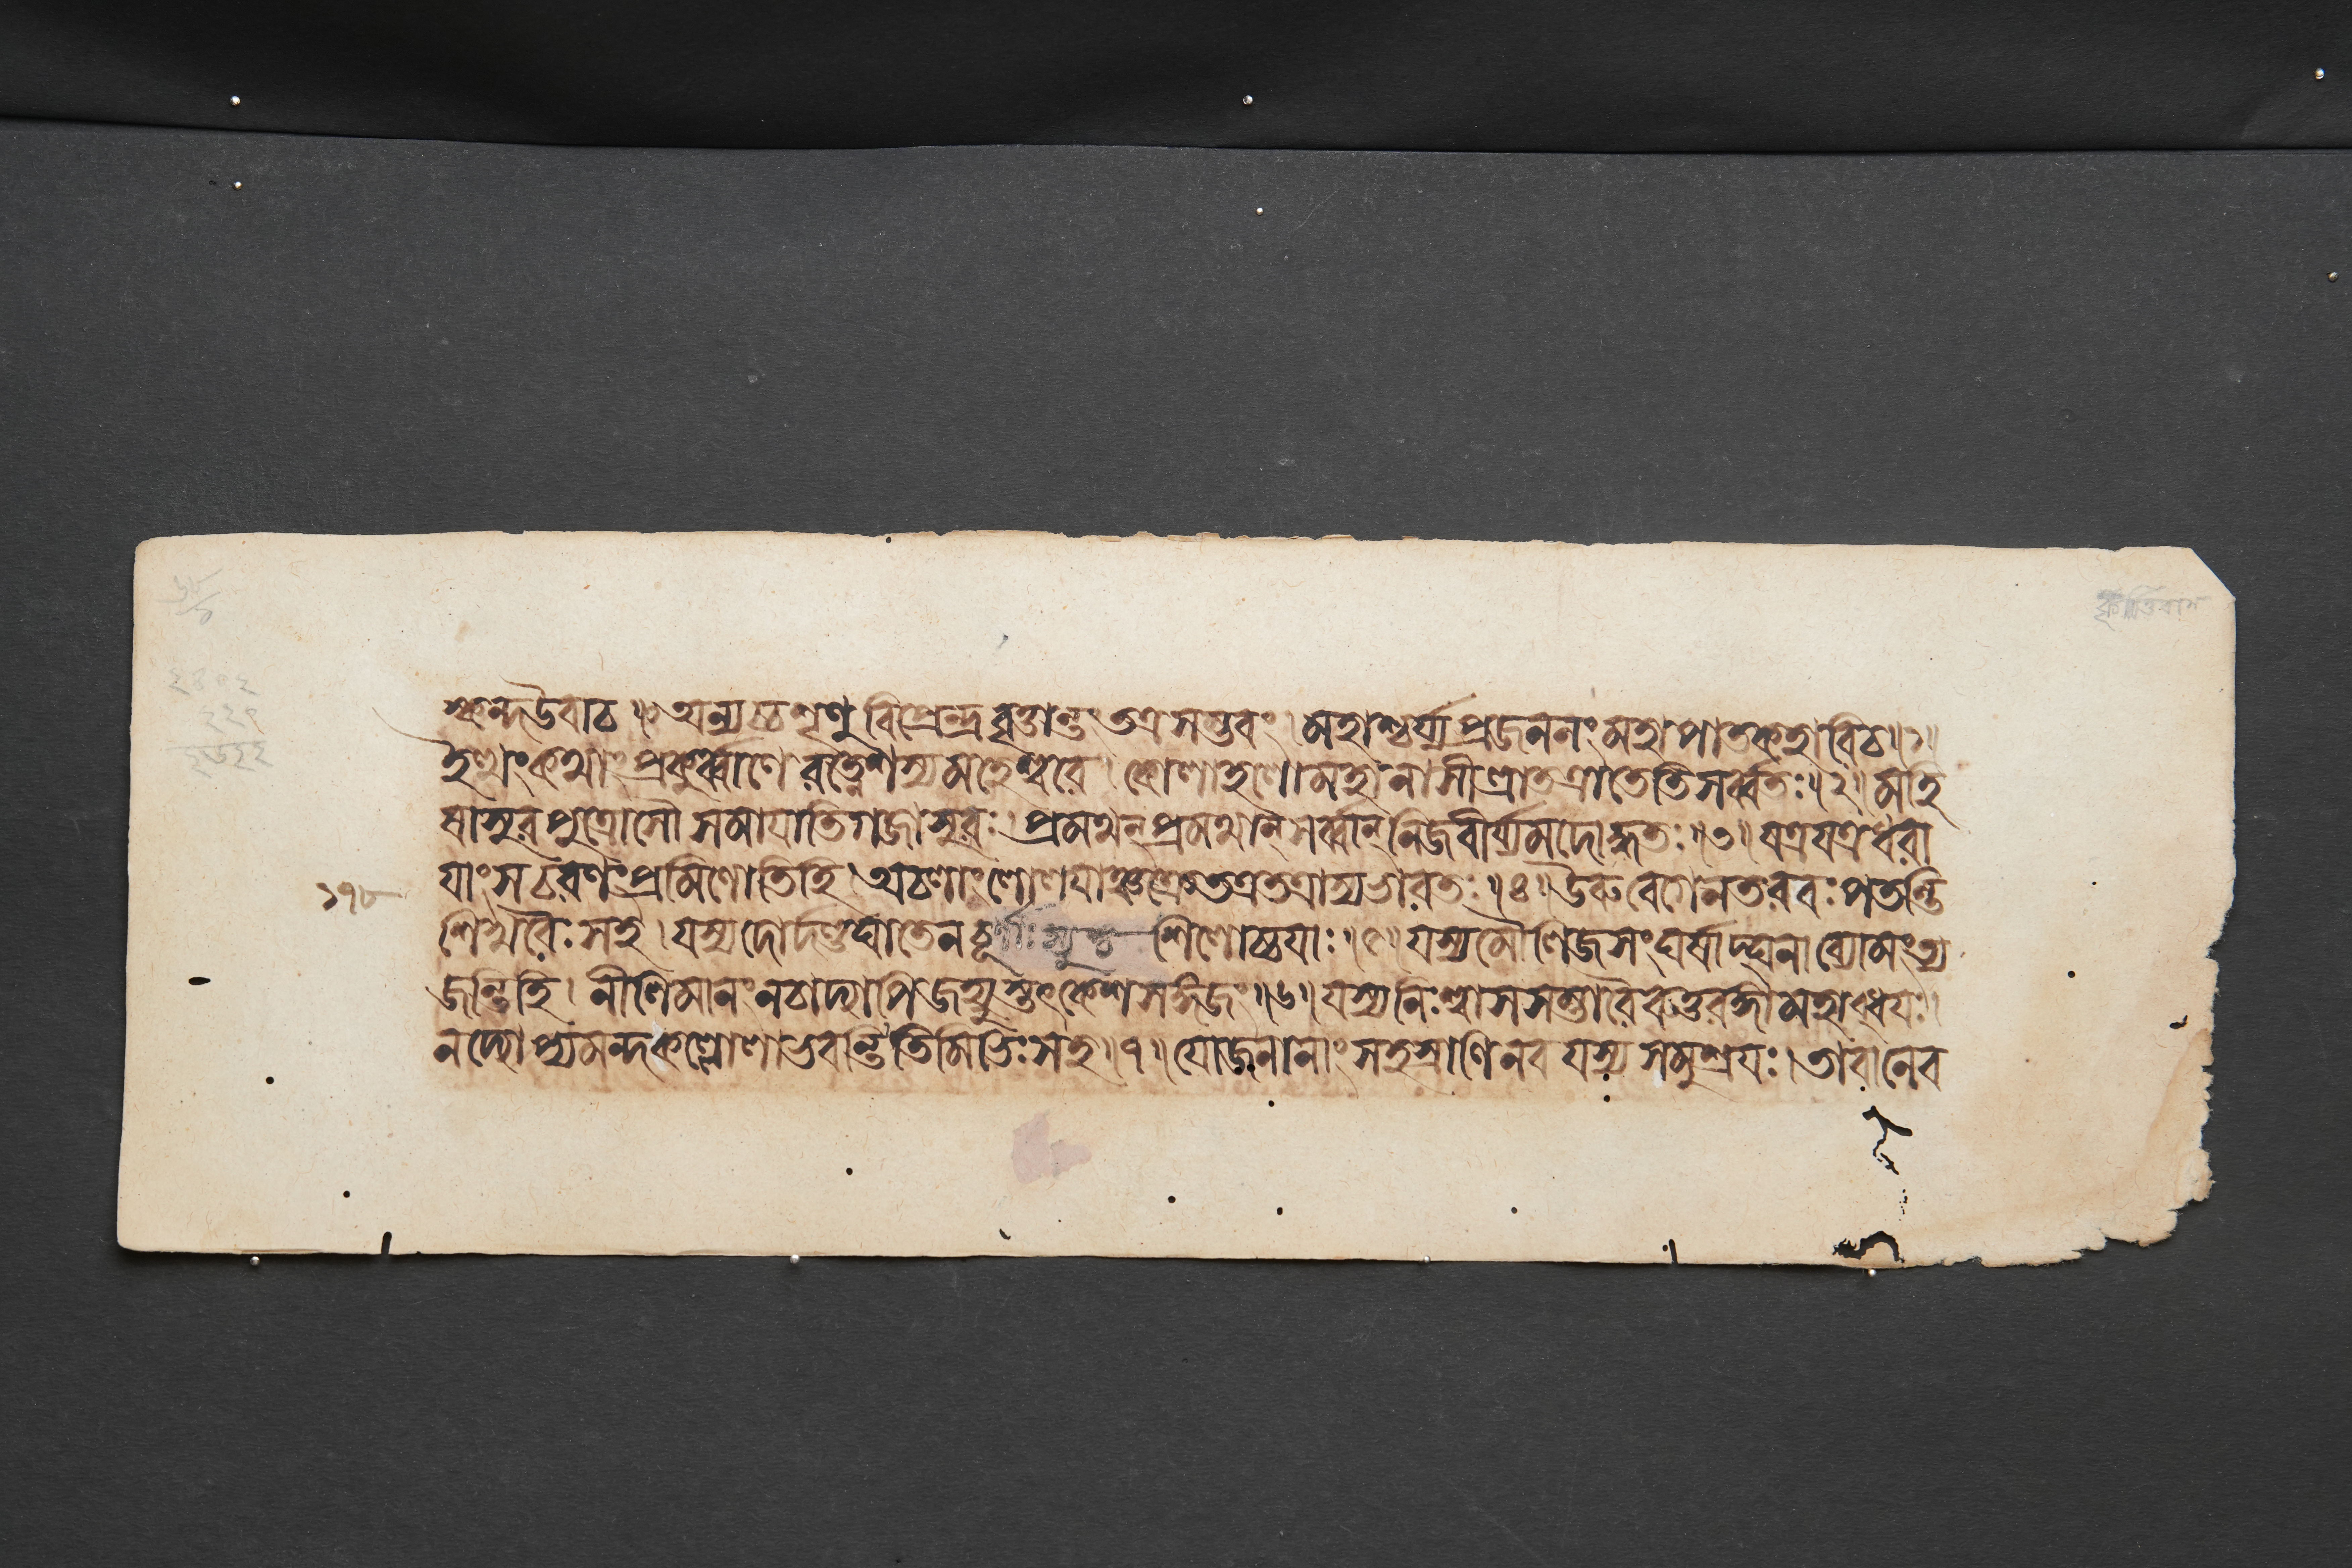 স্কন্দউবাচ ॥ অন্যচ্চশৃণু বিপ্রেন্দ্র বৃত্তান্তং তত্রসম্ভবং । মহাশ্চর্য্যপ্রজননং মহাপাতকহারিচ ॥১॥
ইত্থংকথাং প্রকুর্ব্বাণে রত্নেশস্যমহেশ্বরে । কোলাহলোমহানাসীত্ত্রাতত্রাতেতিসর্ব্বতঃ ॥২॥ মহি
ষাসুরপুত্রোসৌ সমাযাতিগজাসুরঃ । প্রমথন্প্রমথান্সর্ব্বান্ নিজবীর্য্যমদোদ্ধতঃ ॥৩॥ যত্রযত্রধরা
যাংসচরণংপ্রমিণোতিহি । অচলাংলোলযাঞ্চক্রেতত্রতত্রাস্যভারতঃ ॥৪॥ ঊরুবেগেনতরবঃপতন্তি
শিখরৈঃসহ । যস্যদোর্দণ্ডঘাতেনচূর্ণাঃস্যুশ্চ শিলোচ্চযাঃ ॥৫॥ যস্যমৌলিজসংঘর্ষাদ্ঘনাব্যোমংত্য
জন্তিহি । নীলিমানংনচাদ্যাপিজহ্যুস্তৎকেশসঙ্গিজং ॥৬॥ যস্যনিঃশ্বাসসম্ভারৈরুত্তরঙ্গামহাব্ধযঃ ।
নদ্যোপ্যমন্দকল্লোলাভবন্তিতিমিভিঃসহ ॥৭॥ যোজনানাংসহস্রাণিনব যস্য সমুশ্রযঃ । তাবানেব
১৭৮
কৃত্তিবাস